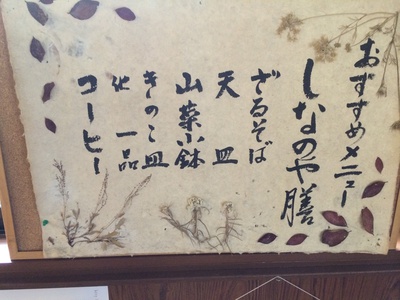 おすすめメニュー
しなのや膳
ざるそば
天皿
山菜小鉢
きのこ皿
他一品
コーヒー